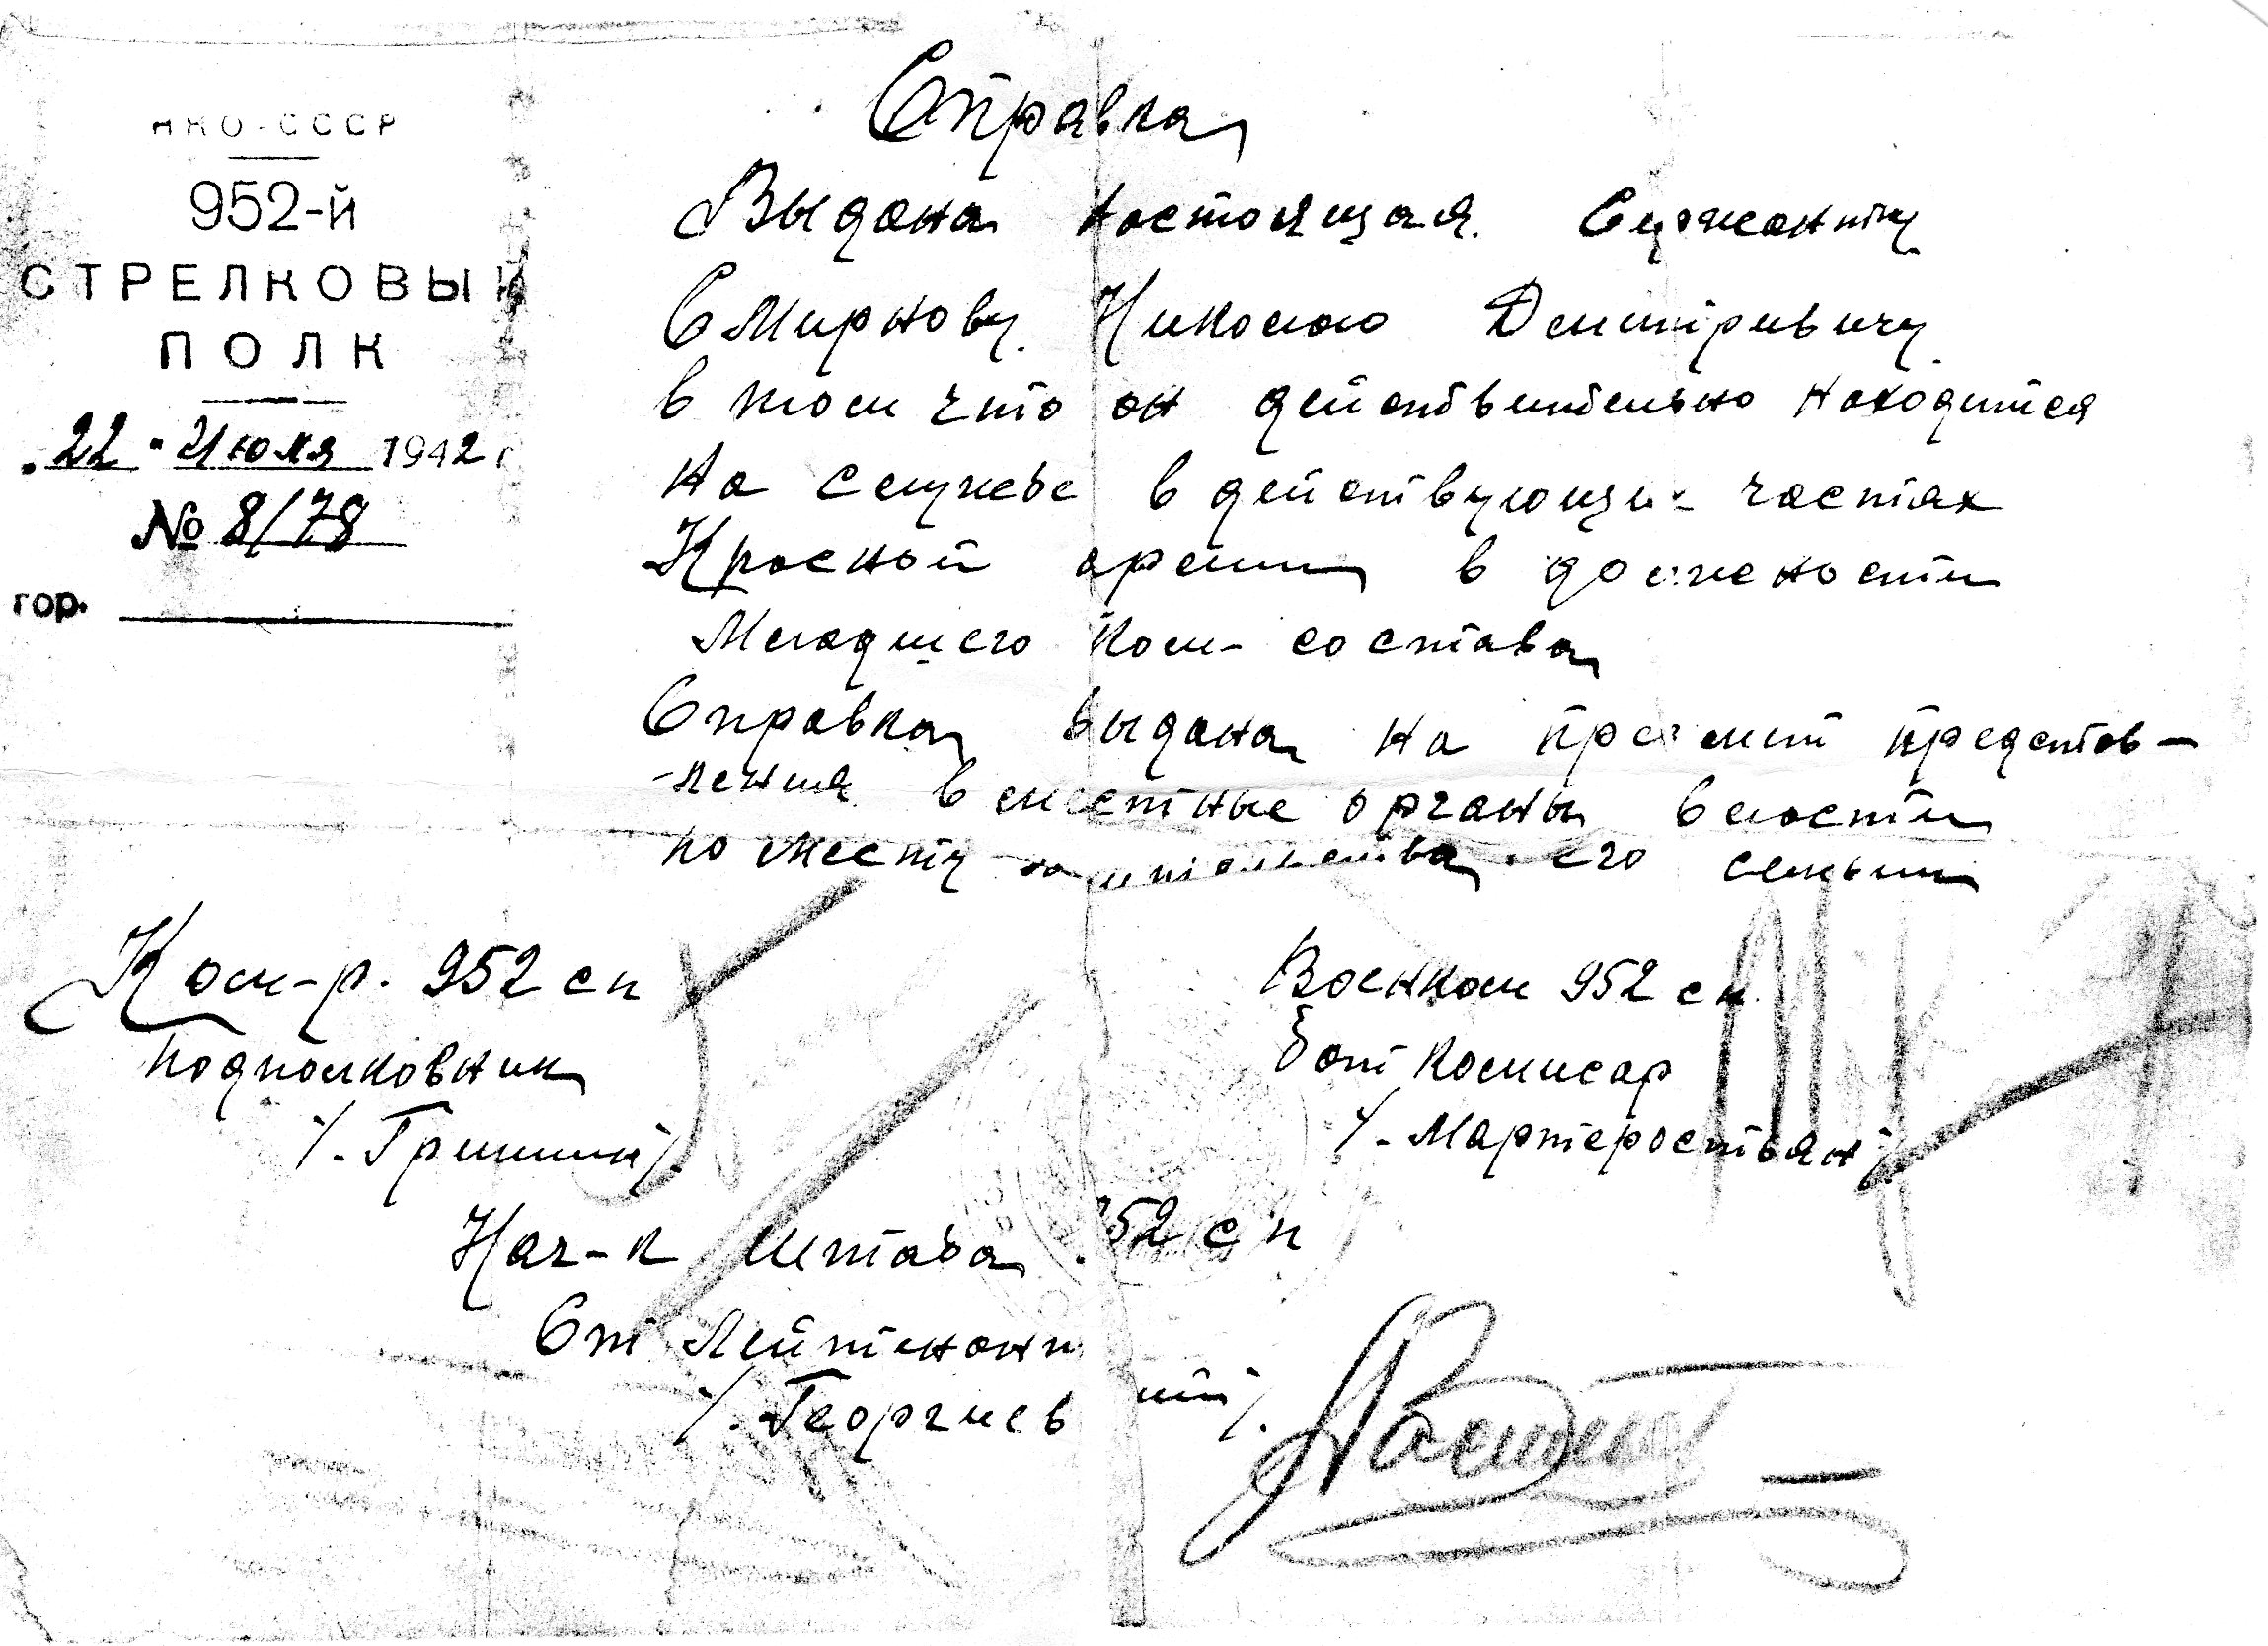 НКО-СССР
952-й
СТРЕЛКОВЫЙ
ПОЛК
"22" Июля 1942 г.
№ 8/78
гор.
Справка
Выдана настоящая Сержанту
Смирнову Николаю Дмитриевичу
в том что он действительно находится
на службе в действующих частях
Красной армии в должности
Младшего ком- состава
Справка выдана на предмет представ-
-ления в местные органы власти
по месту жительства его семьи
Ком-р. 952 сп
подполковник
/. Гришин/.
Военком 952 сп.
бат комисар
/. Мартеростьян/
Нач-к штаба 952 сп
Ст Лейтенант
/. Георгиев